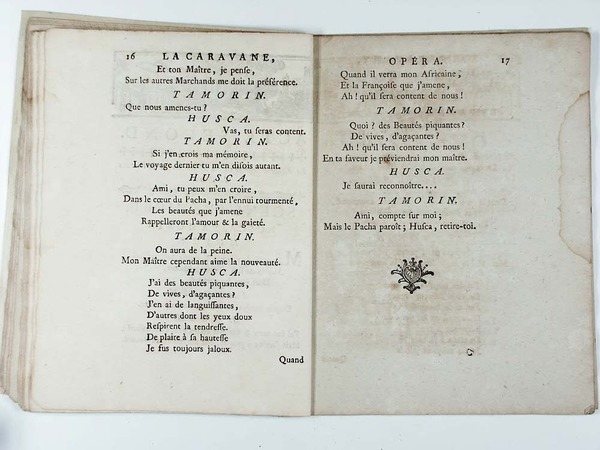 16 LA CARAVANE,
Et ton Maître, je pense,
Sur les autres Marchands me doit la préférence.
TAMORIN.
Que nous amenes-tu ?
HUSCA.
Vas, tu seras content.
TAMORIN.
Si j'en crois ma mémoire,
Le voyage dernier tu m'en disois autant.
HUSCA.
Ami, tu peux m'en croire,
Dans le cœur du Pacha, par l'ennui tourmenté,
Les beautés que j'amene
Rappelleront l'amour & la gaieté.
TAMORIN.
On aura de la peine.
Mon Maître cependant aime la nouveauté.
HUSCA.
J'ai des beautés piquantes,
De vives, d'agaçantes ?
J'en ai de languissantes,
D'autres dont les yeux doux
Respirent la tendresse.
De plaire à sa hautesse
Je fus toujours jaloux.
Quand
OPÉRA. 17
Quand il verra mon Africaine,
Et la Françoise que j'amene,
Ah ! qu'il sera content de nous !
TAMORIN.
Quoi ? des Beautés piquantes ?
De vives, d'agaçantes ?
Ah ! qu'il sera content de nous !
En ta faveur je préviendrai mon maître.
HUSCA.
Je saurai reconnoître....
TAMORIN.
Ami, compte sur moi ;
Mais le Pacha paroît ; Husca, retire-toi.
C